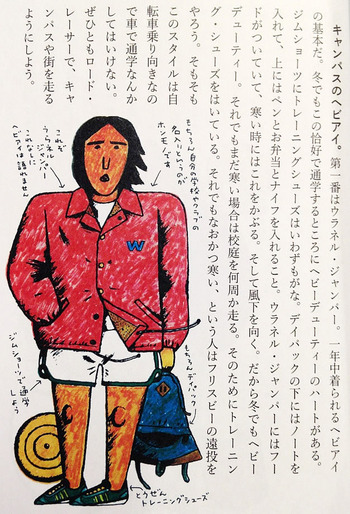 キャンパスのヘビアイ。第一番はウラネル・ジャンパー。一年中着られるヘビアイ
の基本だ。冬でもこの恰好で通学するところにヘビーデューティーのハートがある。
ジムショーツにトレーニングシューズはいわずもがな。デイパックの下にはノートを
入れて、上にはペンとお弁当とナイフを入れること。ウラネル・ジャンパーにはフー
ドがついていて、寒い時にはこれをかぶる。そして風下を向く。だから冬でもヘビー
デューティー。それでもまだ寒い場合は校庭を何周か走る。そのためにトレーニン
グ・シューズをはいている。それでもなおかつ寒い、という人はフリスビーの遠投を
やろう。そもそも
このスタイルは自
転車乗り向きなの
で車で通学なんか
してはいけない。
ぜひともロード・
レーサーで、キャ
ンパスや街を走る
ようにしよう。
もちろん自分の学校やクラブの
名入りというのが
ホンモノです
これぞ
ウラネル
ジャンパー
これなしに
ヘビアイは語れません
W
もちろんデイパック
ジムショーツで通学
しよう
とうぜん
トレーニングシューズ